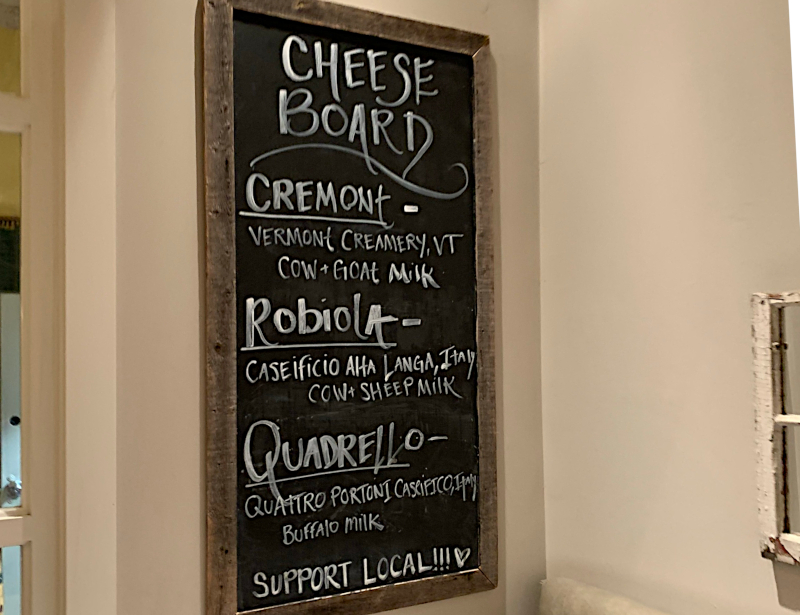 CHEESE
BOARD
CREMONT -
VERMONT CREAMERY, VT
COW + GOAT MILK
ROBIOLA -
CASEIFICIO ALTA LANGA, ITALY
COW + SHEEP MILK
QUADRELLO -
QUATTRO PORTONI CASEIFICO, ITALY
BUFFALO MILK
SUPPORT LOCAL!!! ♡